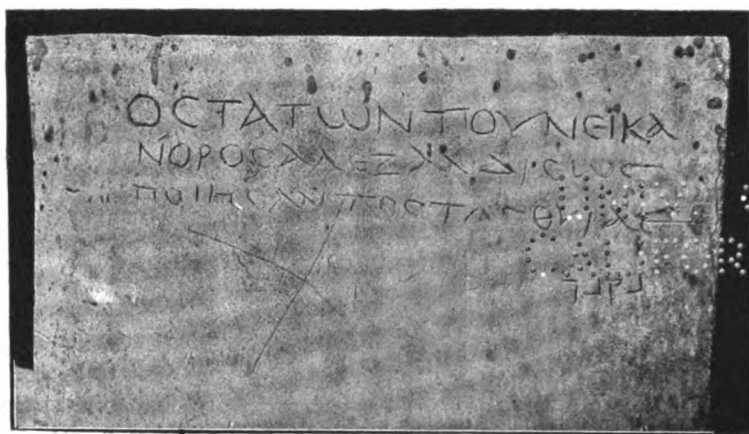 ΟCΤΑΤωΝΤΟΥΝΕΙΚΑ
ΝΟΡΟCΑΛΕΞΑΝΔΡΕωC
ΠΟΙΗCΑΝΤΟCΤΑCΘΥΡΑC